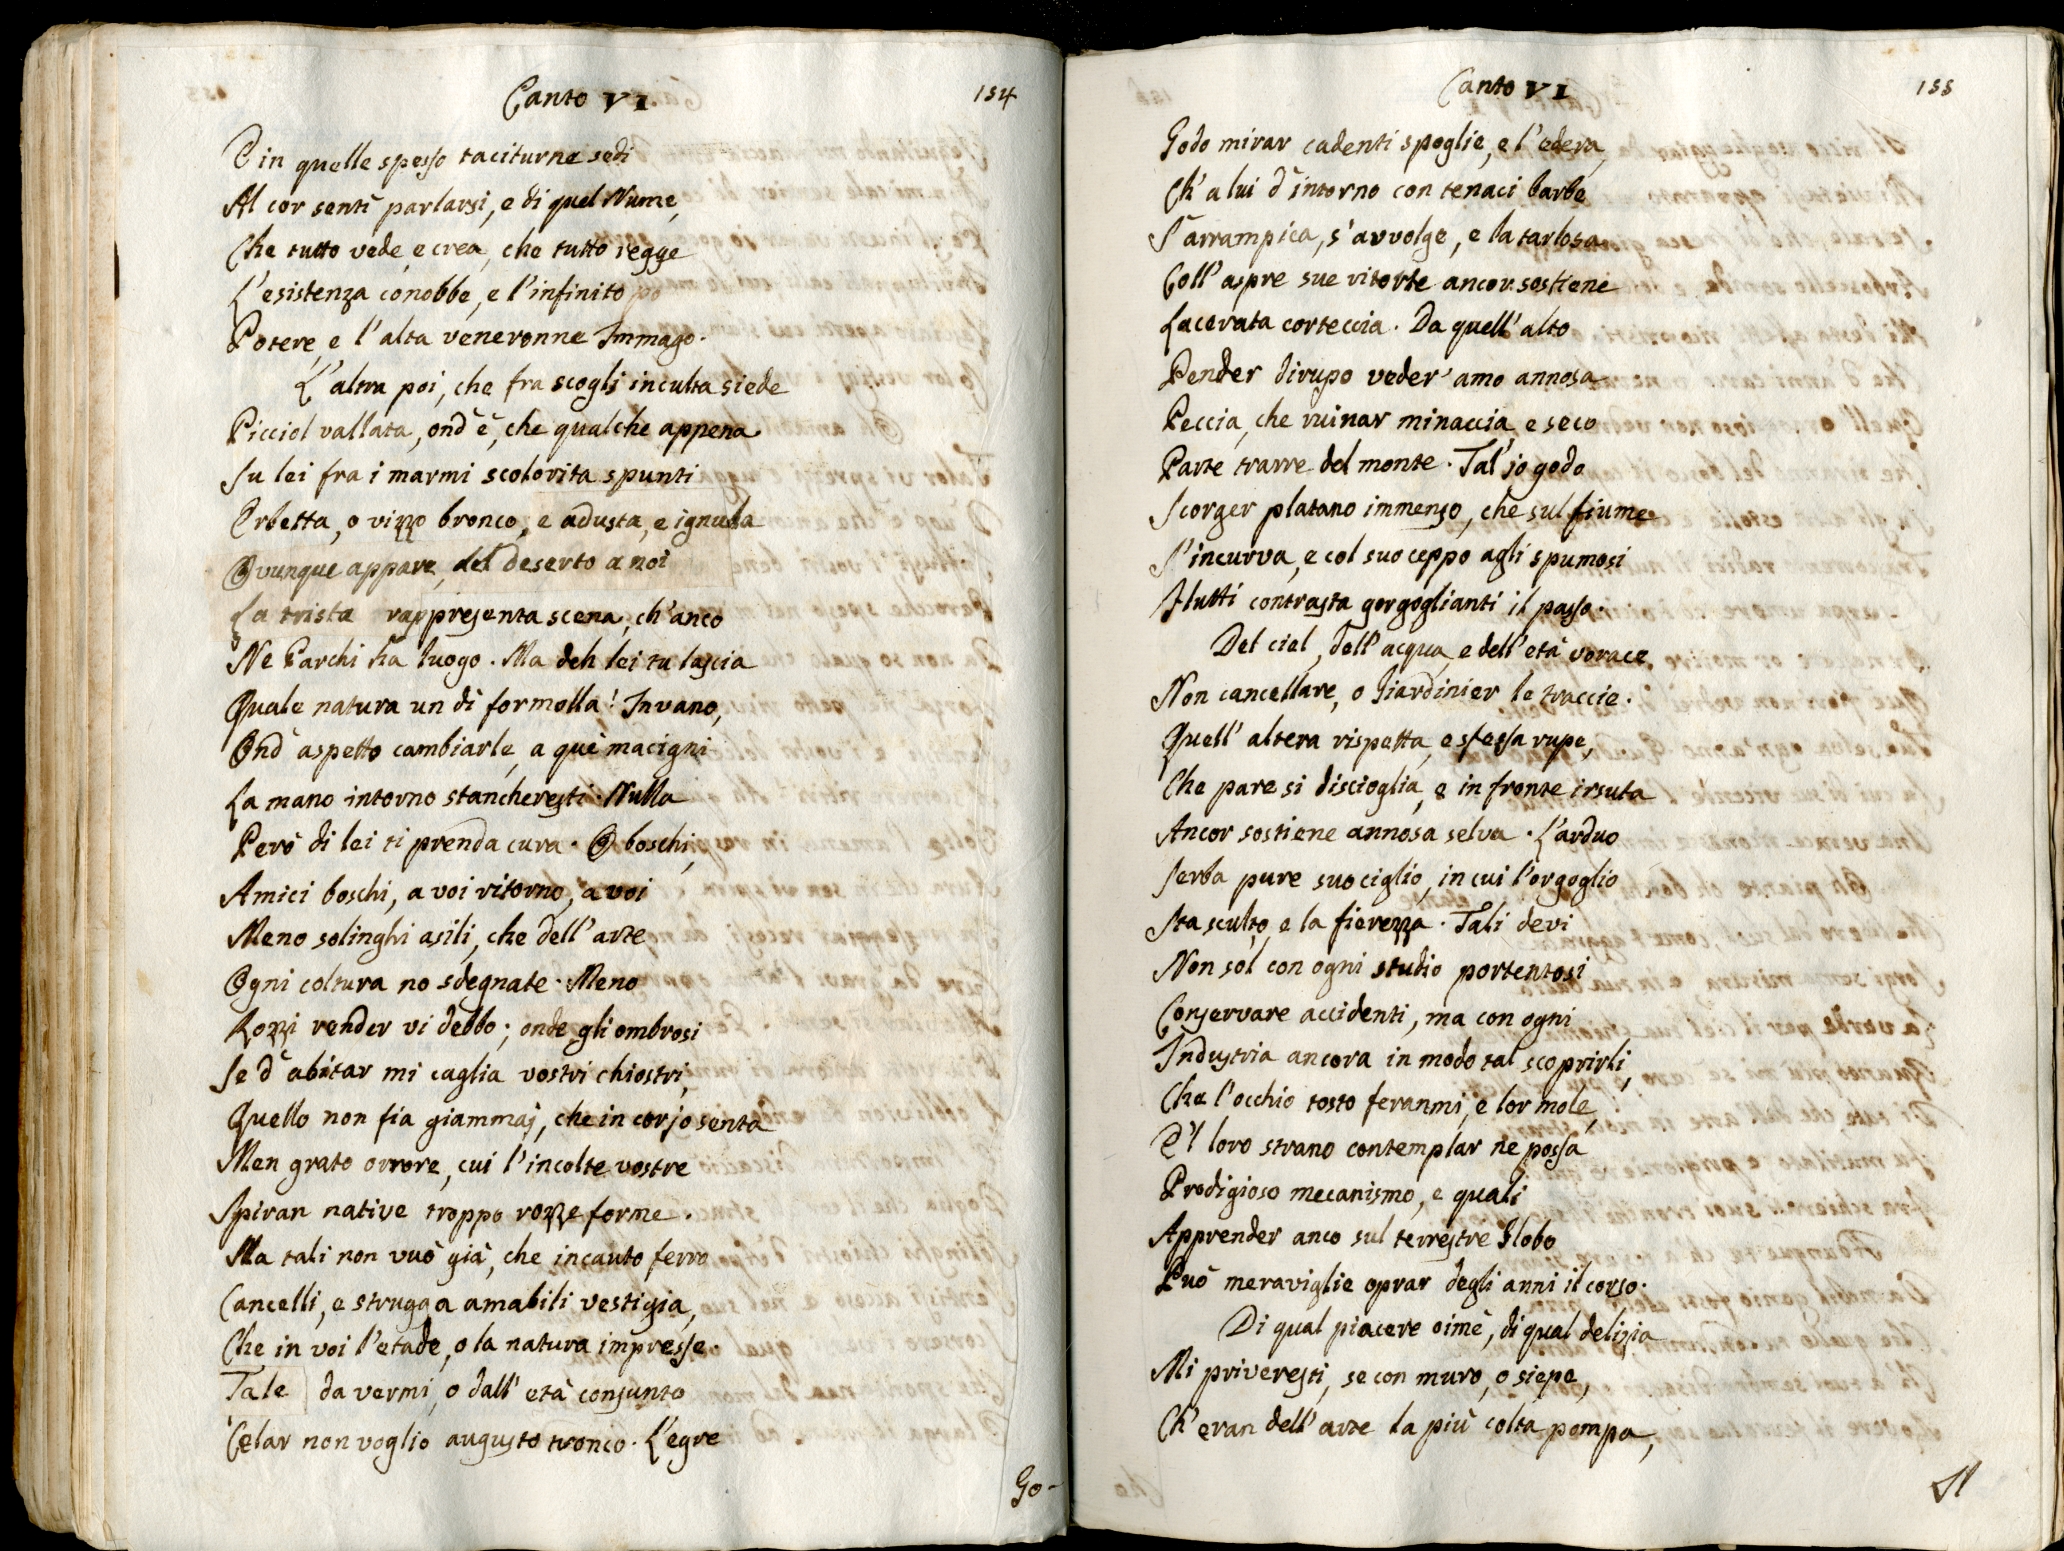 Canto VI
154
E in quelle spesso taciturne sedi
Al cor sentì parlarsi, e di quel Nume,
Che tutto vede, e crea, che tutto regge
L'esistenza conobbe, e l'infinito
Potere, e l'alta veneronne Immago.
L'altra poi, che fra scogli inculta siede
Picciol vallata, ond'è, che qualche appena
Su lei fra i marmi scolorita spunti
Erbetta, o vizzo bronco, e adusta, e ignuda
Ovunque appare, del deserto a noi
La trista rappresenta scena, ch'anco
Ne Parchi ha luogo. Ma deh lei tu lascia
Quale natura un dì formolla! Invano,
Ond'aspetto cambiarle, a què macigni
La mano intorno stancheresti. Nulla
Però di lei ti prenda cura. O boschi,
Amici boschi, a voi ritorno, a voi
Meno solinghi asili, che dell'arte
Ogni coltura no sdegnate. Meno
Rozzi render vi debbo; onde gli ombrosi
Se d'abitar mi caglia vostri chiostri,
Quello non fia giammaj, che in cor jo senta
Men grato orrore, cui l'incolte vostre
Spiran native troppo rozze forme.
Ma tali non vuò già, che incauto ferro
Cancelli, e strugga amabili vestigia,
Che in voi l'etade, o la natura impresse.
Tale da vermi, o dall'età consunto
Celar non voglio augusto tronco. L'egre
Go-
Canto VI
155
Godo mirar cadenti spoglie, e l'edera,
Ch'a lui d'intorno con tenaci barbe
S'arrampica, s'avvolge, e la tarlosa
Coll'aspre sue ritorte ancor sostiene
Lacerata corteccia. Da quell'alto
Pender dirupo veder'amo annosa
Peccia, che ruinar minaccia, e seco
Parte trarre del monte. Tal'jo godo
Scorger platano immenso, che sul fiume
S'incurva, e col suo ceppo agli spumosi
Flutti contrasta gorgoglianti il passo.
Del ciel, dell'acqua, e dell'età vorace
Non cancellare, o Giardinier le traccie.
Quell'altera rispetta, e stessa rupe,
Che pare si discioglia, e in fronte irsuta
Ancor sostiene annosa selva. L'arduo
Serba pure suo ciglio, in cui l'orgoglio
Sta sculto, e la fierezza. Tali devi
Non sol con ogni studio portentosi
Conservare accidenti, ma con ogni
Industria ancora in modo tal scoprirli,
Che l'occhio tosto feranmi, e lor mole,
E'l loro strano contemplar ne possa
Prodigioso mecanismo, e quali
Apprender anco sul terrestre Globo
Può meraviglie oprar degli anni il corso.
Di qual piacere oimè, di qual delizia
Mi priveresti, se con muro, o siepe,
Ch'eran dell'arte la più colta pompa,
Il